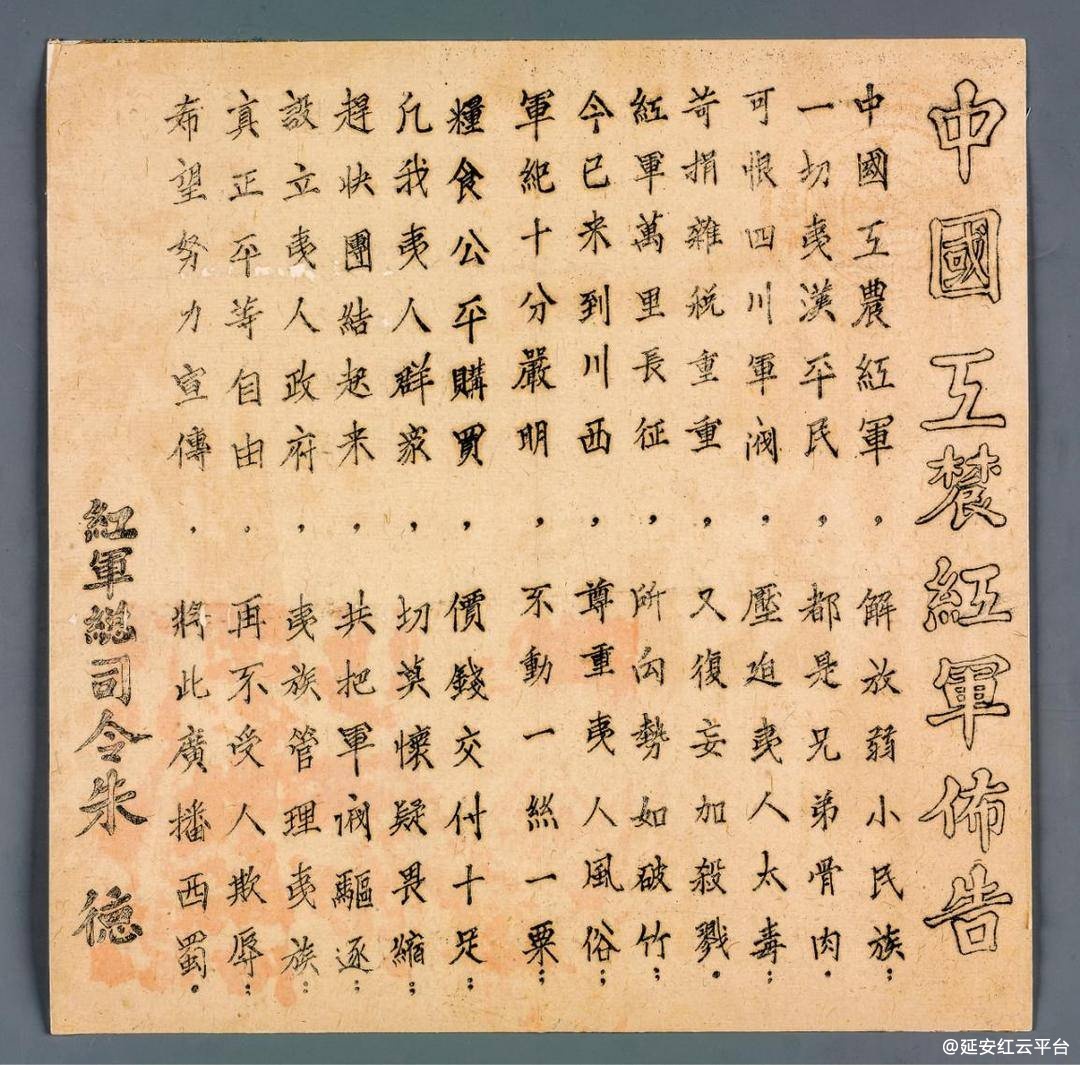 中國工農紅軍佈告
中國工農紅軍，解放弱小民族；
一切夷漢平民，都是兄弟骨肉．
可恨四川軍閥，壓迫夷人太毒；
苛捐雜稅重重，又復妄加殺戮．
紅軍萬里長征，所向勢如破竹；
今已来到川西，尊重夷人風俗；
軍紀十分嚴明，不動一絲一粟；
糧食公平購買，價錢交付十足；
凡我夷人群衆，切莫懷疑畏縮；
趕快團結起来，共把軍閥驅逐；
設立夷人政府，夷族管理夷族；
真正平等自由，再不受人欺辱；
希望努力宣傳，將此廣播西蜀．
紅軍總司令朱德
@延安红云平台